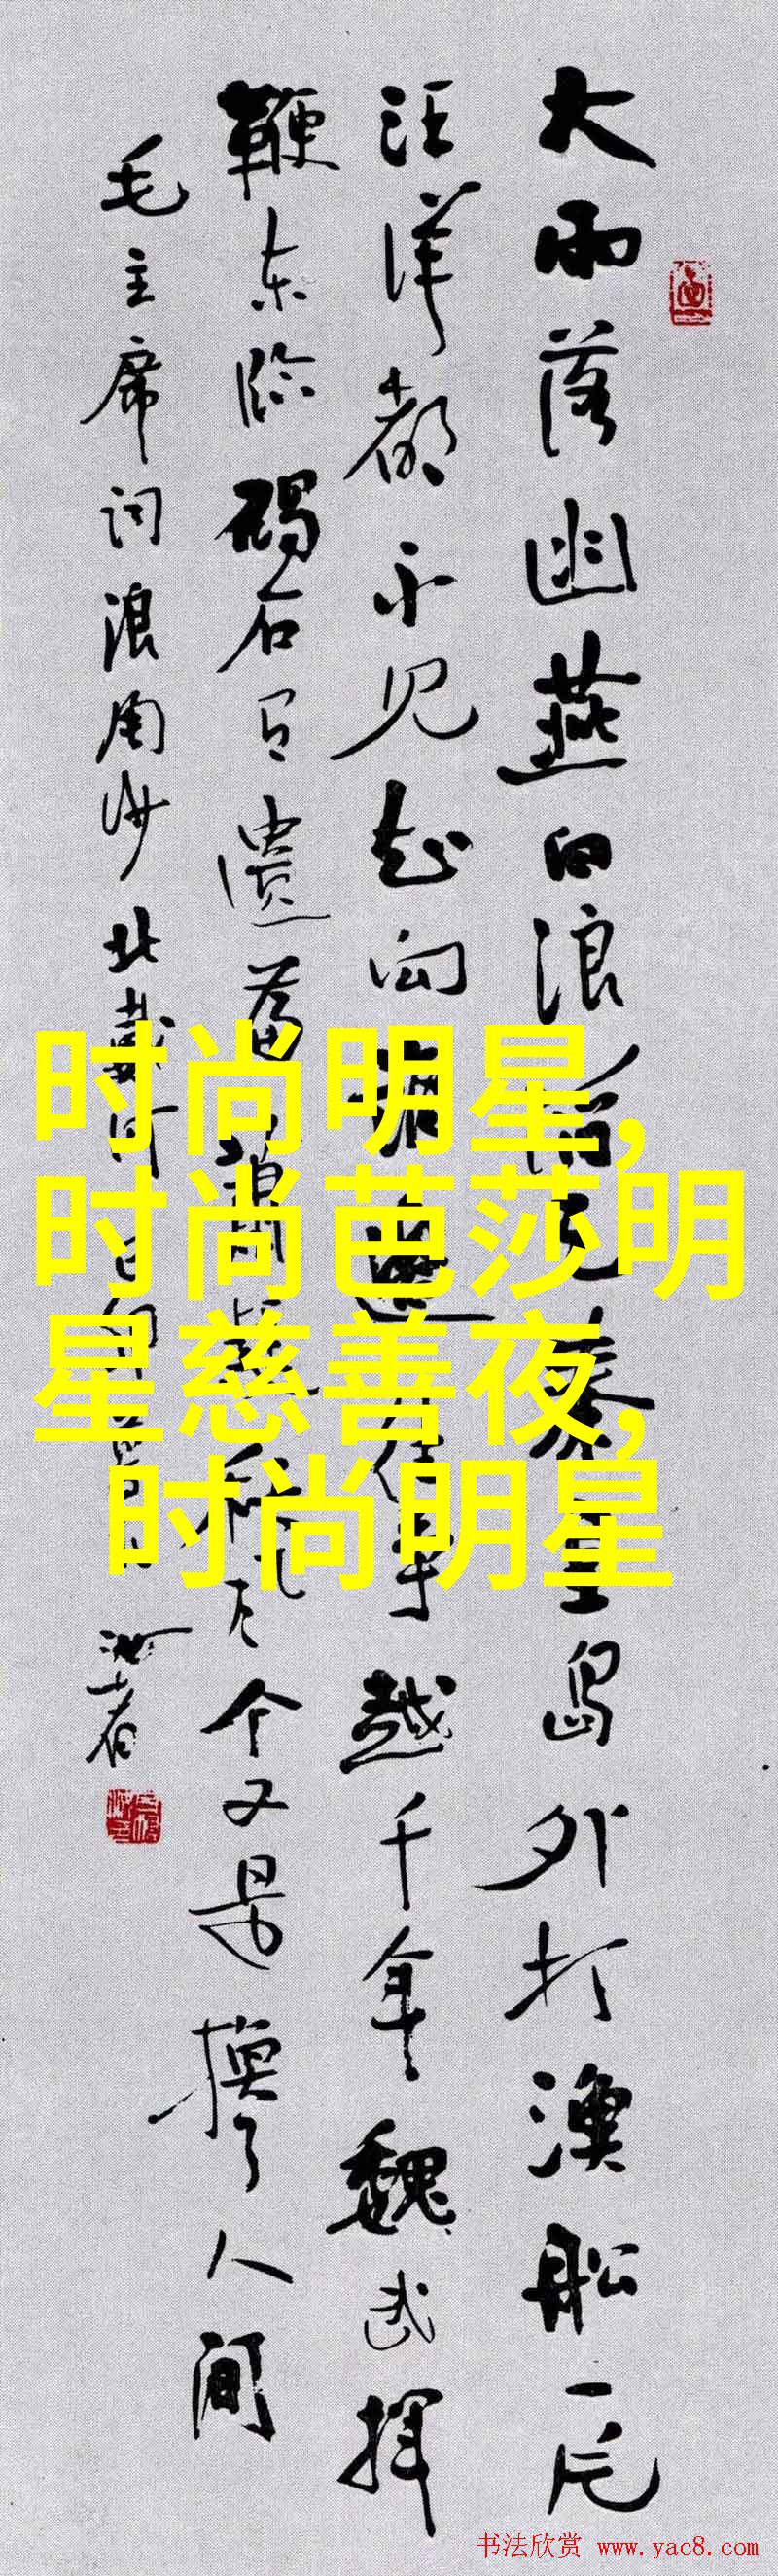 大雨落幽燕白浪滔天秦皇岛外打漁船一片
汪洋都不见知向谁边往事越千年魏武挥
鞭东临碣石有遗萧瑟秋风今又是换了人间
毛主席词浪淘沙北戴河
时尚明星,
时尚芭莎明
星慈善夜,
时尚明星
书法欣赏 www.yac8.com